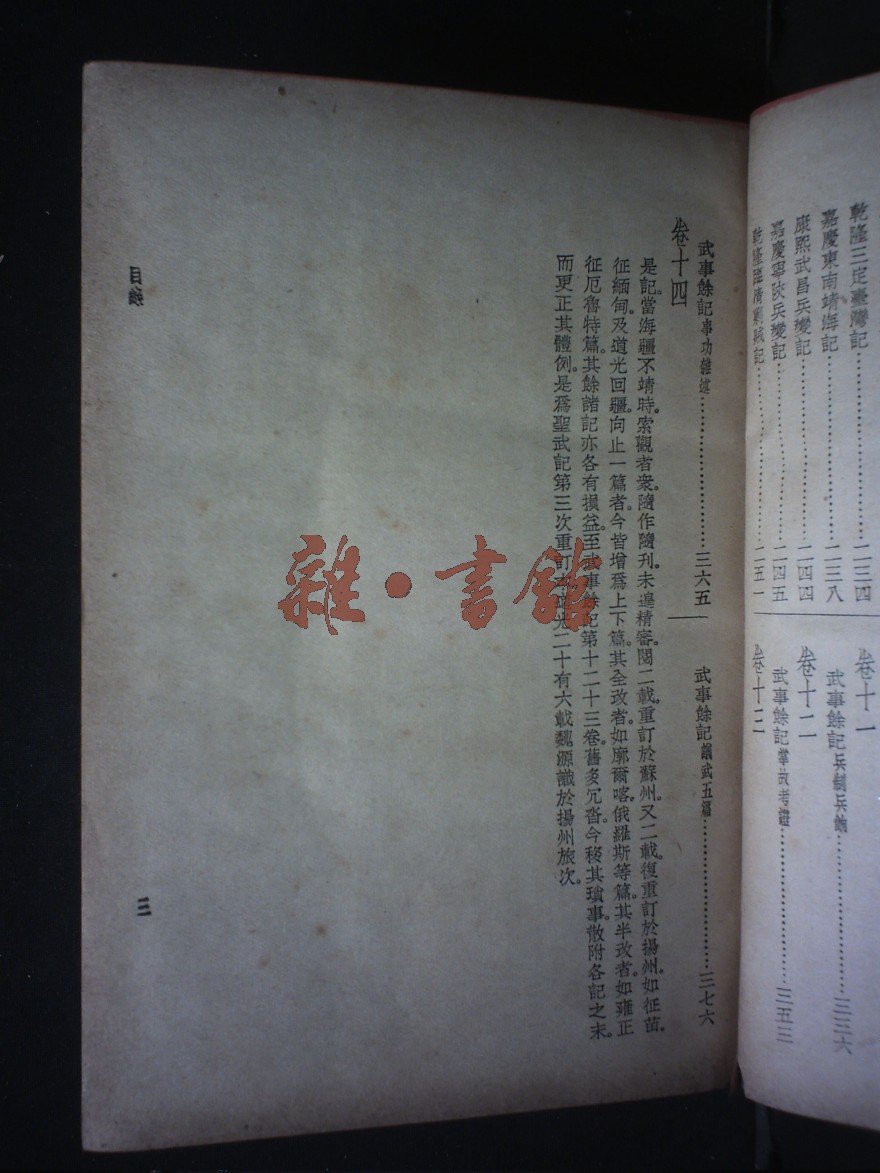 乾隆三定臺灣記⋯⋯二三四
嘉慶東南靖海記⋯⋯二三八
康熙武昌兵變記⋯⋯二四四
嘉慶寧陜兵變記⋯⋯二四五
乾隆臨清剿賊記⋯⋯二五一
卷十一
武事餘記兵制兵餉⋯⋯三三六
卷十二
武事餘記掌故考證⋯⋯三五三
卷十三
武事餘記事功雜述⋯⋯三六五
卷十四
武事餘記議武五篇⋯⋯三七六
是記。當海疆不靖時。索觀者衆。隨作隨刊。未遑精審。閱二載。重訂於蘇州。又二載。復重訂於揚州。如征苗。
征緬甸。及道光回疆。向止一篇者。今皆增爲上下篇。其全改者。如廓爾喀。俄羅斯等篇。其半改者。如雍正
征厄魯特篇。其餘諸記亦各有損益。至武事餘記第十二十三卷。舊多冗沓。今移其瑣事。散附各記之末。
而更正其體例。是爲聖武記第三次重訂本。道光二十有六載。魏源識於揚州旅次。
目錄
三
雜·書館